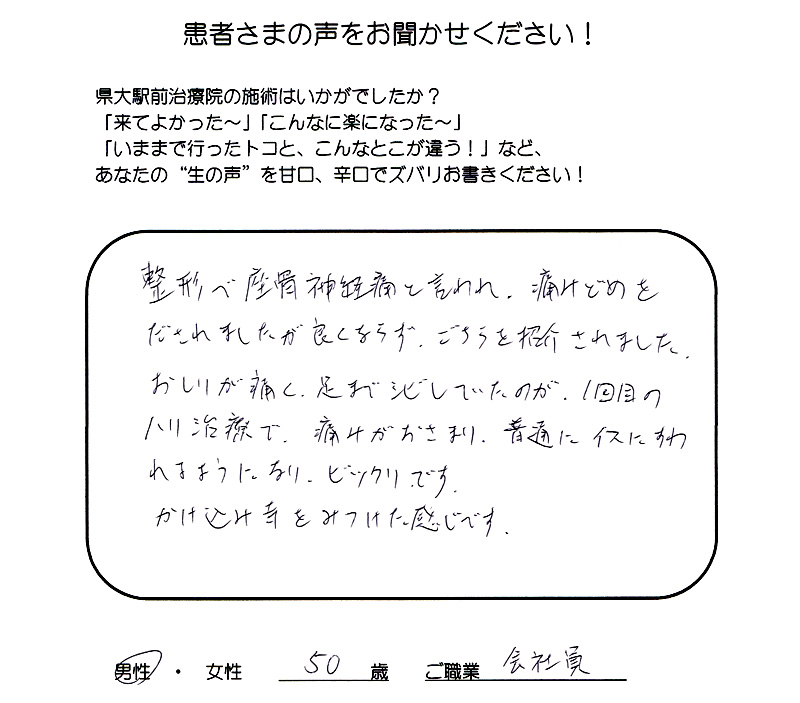 患者さまの声をお聞かせください！
県大駅前治療院の施術はいかがでしたか？
「来てよかった～」「こんなに楽になった～」
「いままで行ったトコと、こんなとこが違う！」など、
あなたの“生の声”を甘口、辛口でズバリお書きください！
整形で座骨神経痛と言われ、痛けどめを
だされましたが良くならず、こちらを紹介されました。
おしりが痛く、足までシビレていたのが、1回目の
ハリ治療で、痛けがおさまり、普通にイスにすわ
れるようになり、ビックリです。
かけ込み寺をみつけた感じです。
男性 ・ 女性 50 歳 ご職業 会社員